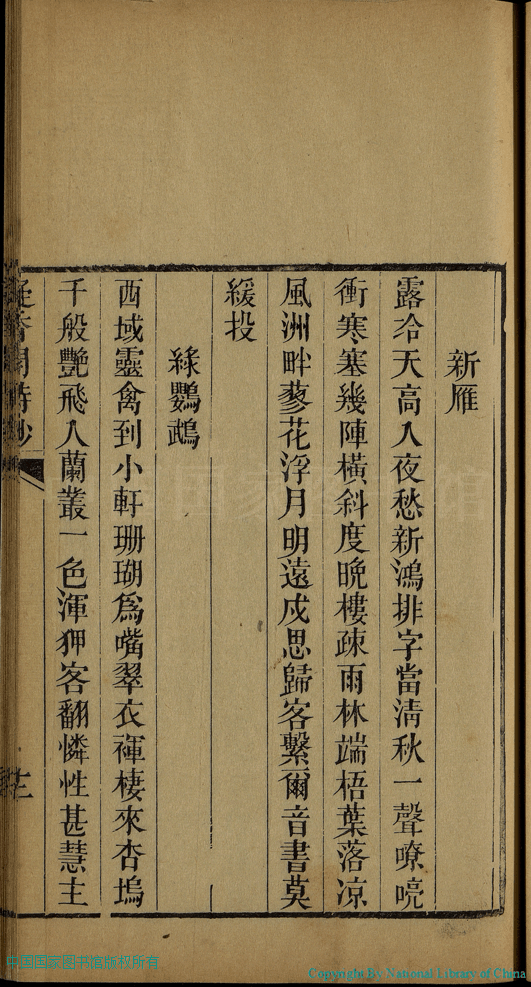 新雁
露冷天高入夜愁新鴻排字當清秋一聲嘹喨
衝寒塞幾陣橫斜度晚樓疎雨林端梧葉落凉
風洲畔蓼花浮月明遠戍思歸客繫爾音書莫
緩投
綠鸚鵡
西域靈禽到小軒珊瑚爲嘴翠衣褌棲來杏塢
千般艷飛入蘭叢一色渾狎客翻憐性甚慧主
香閣詩抄
中国国家图书馆版权所有
Copyright By National Library of China